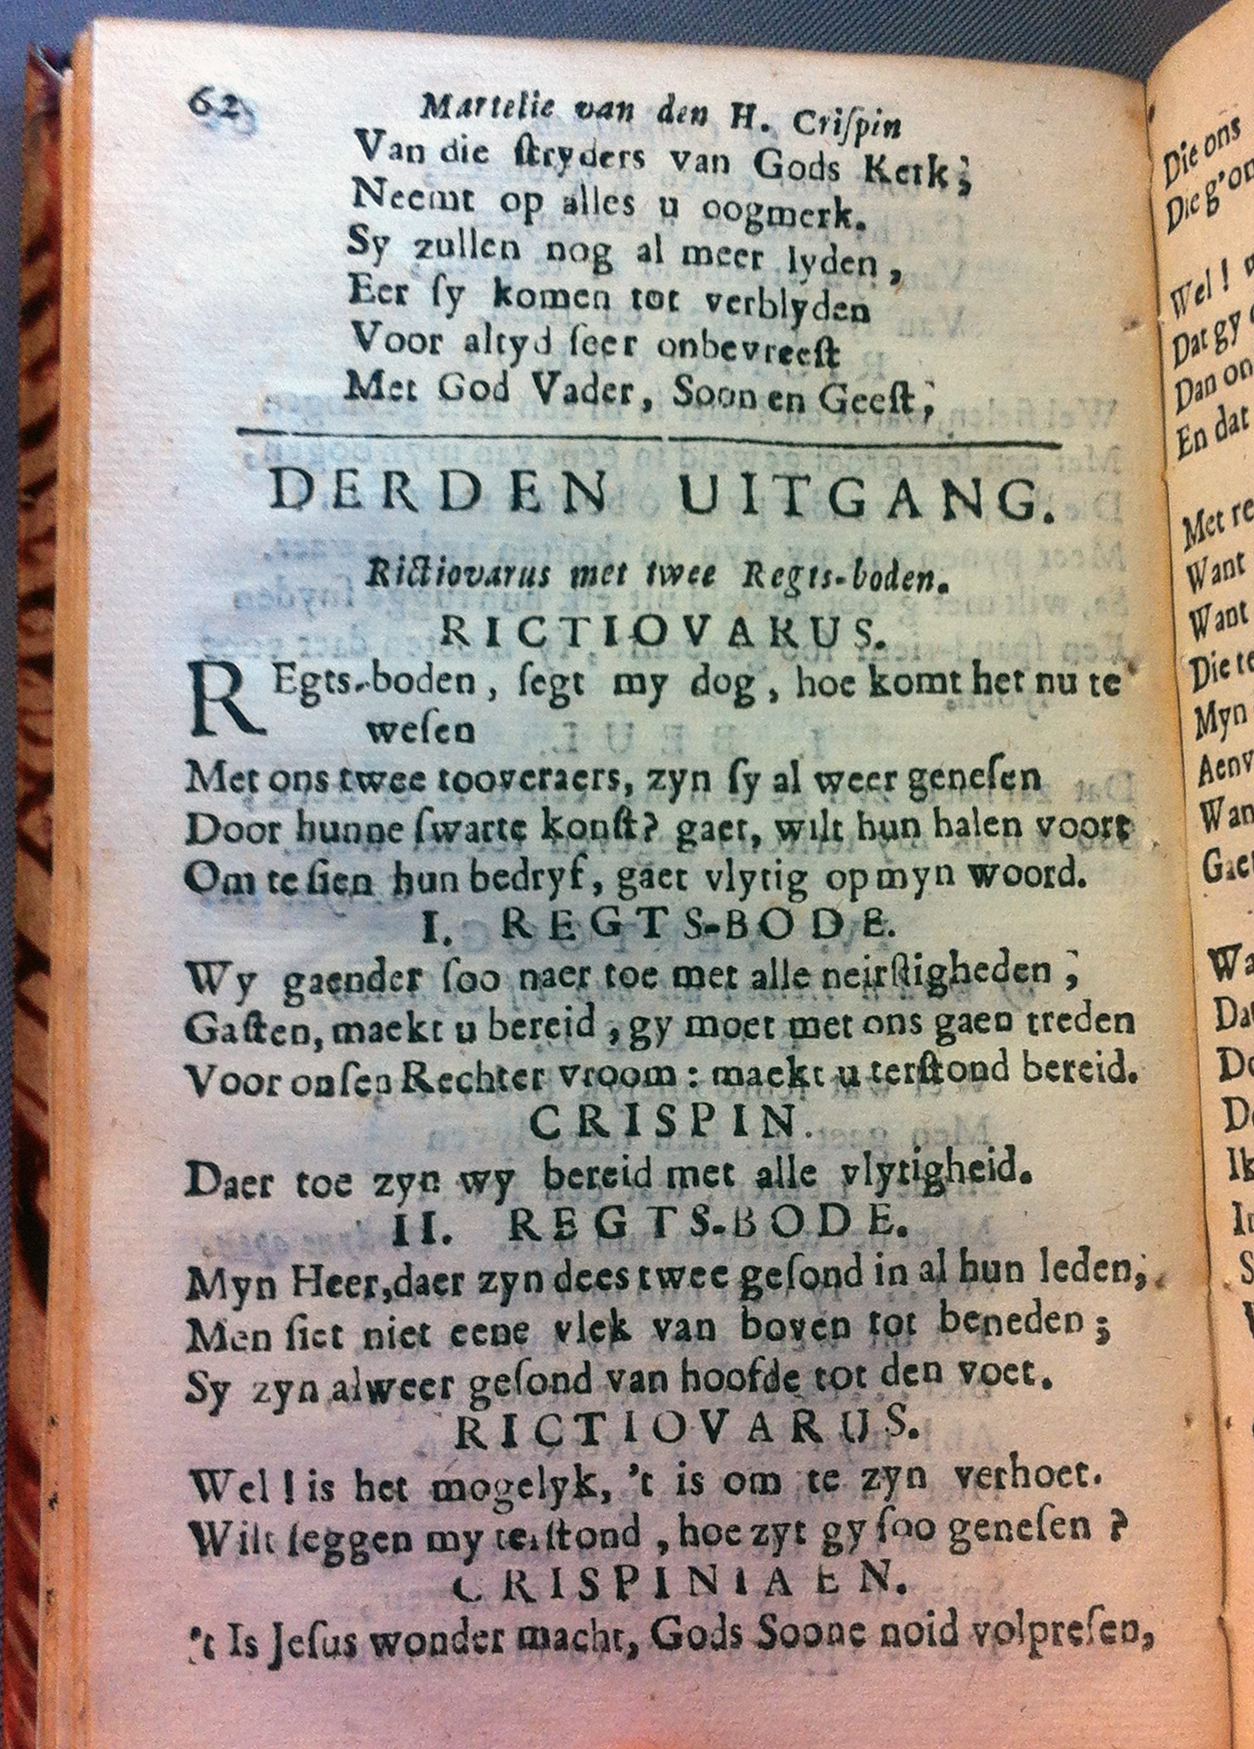 62 Martelie van den H. Criſpin
Van die ſtryders van Gods Kerk;
Neemt op alles u oogmerk.
Sy zullen nog al meer lyden,
Eer ſy komen tot verblyden
Voor altyd ſeer onbevreeſt
Met God Vader, Soon en Geeſt;
DERDEN UITGANG.
Rictiovarus met twee Regts-boden.
RICTIOVARUS.
REgts-boden, ſegt my dog, hoe komt het nu te
weſen
Met ons twee tooveraers, zyn ſy al weer geneſen
Door hunne ſwarte konſt? gaet, wilt hun halen voort
Om te ſien hun bedryf, gaet vlytig op myn woord.
I. REGTS-BODE.
Wy gaender ſoo naer toe met alle neirſtigheden;
Gaſten, maekt u bereid, gy moet met ons gaen treden
Voor onſen Rechter vroom: maekt u terſtond bereid.
CRISPIN.
Daer toe zyn wy bereid met alle vlytigheid.
II. REGTS-BODE.
Myn Heer, daer zyn dees twee geſond in al hun leden;
Men ſiet niet eene vlek van boven tot beneden;
Sy zyn alweer geſond van hoofde tot den voet.
RICTIOVARUS.
Wel! is het mogelyk, 't is om te zyn verhoet.
Wilt ſeggen my terſtond, hoe zyt gy ſoo geneſen?
CRISPINIAEN.
't Is Jeſus wonder macht, Gods Soone noid volpreſen,
Die ons
Die g'on
Wel!
Dat gy
Dan on
En dat
Met re
Want
Want
Die te
Myn
Aenv
Wan
Gaet
Wa
Da
Do
Ik